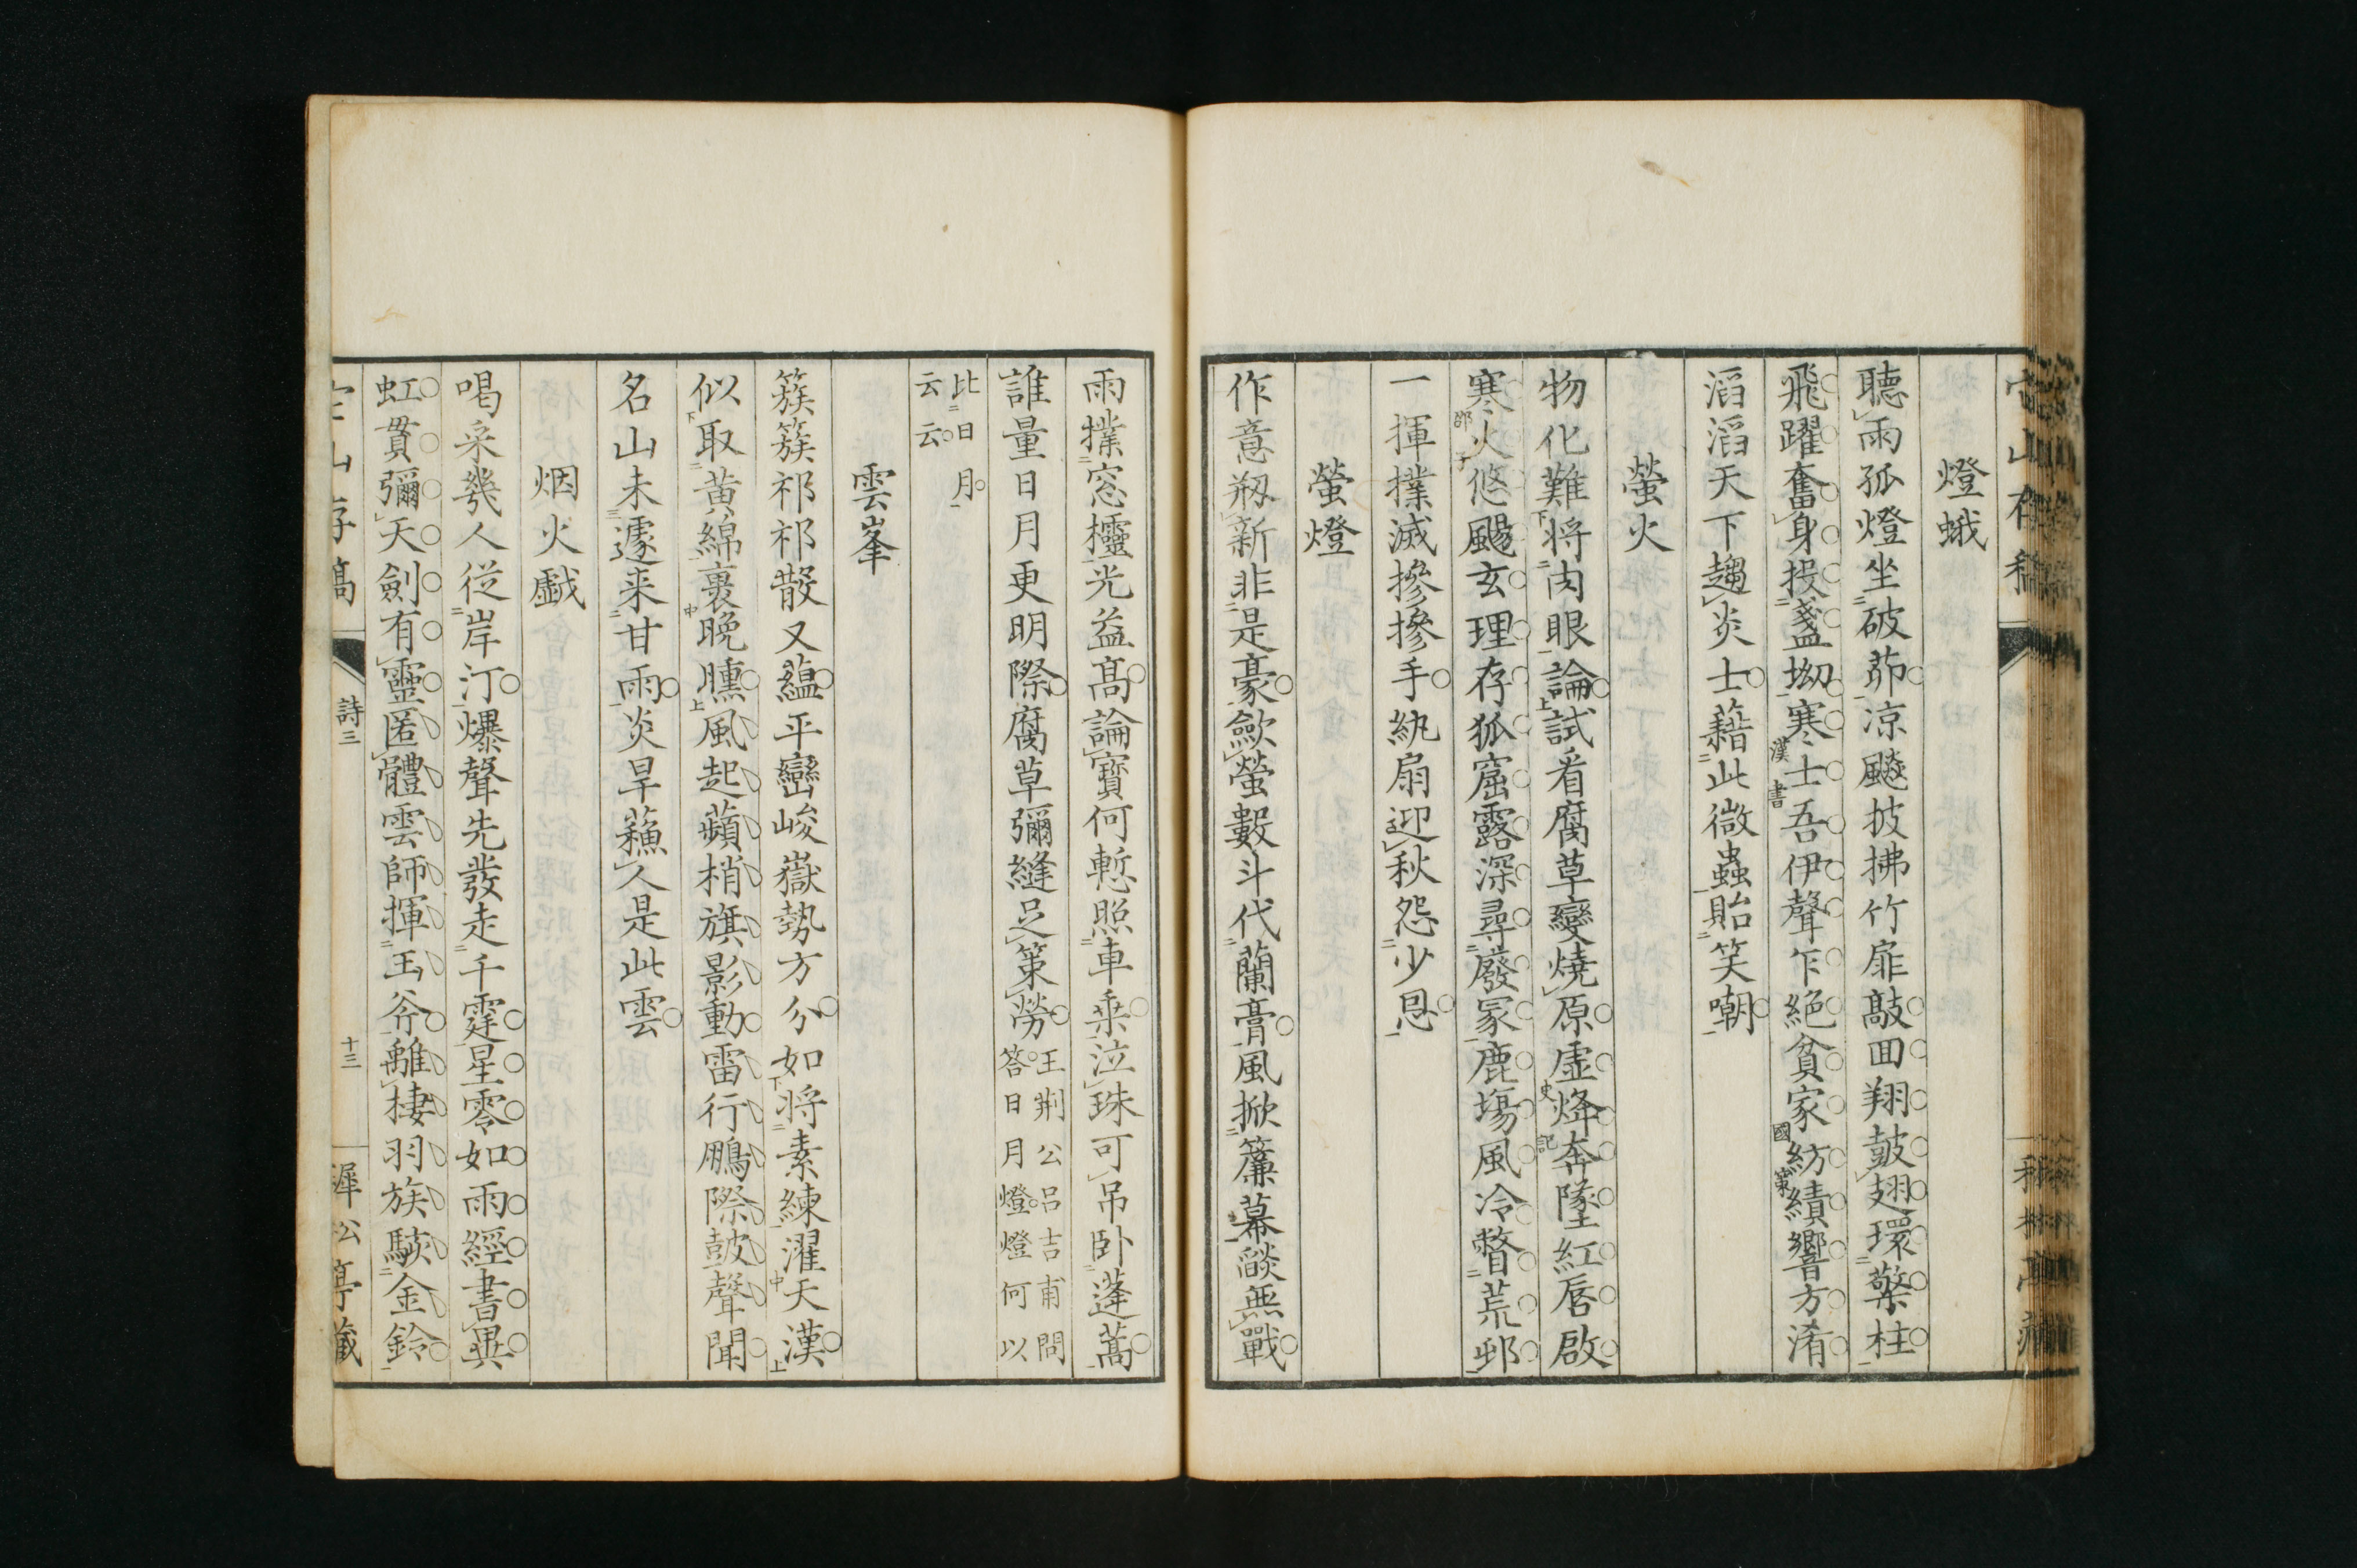 燈蛾
聽雨孤燈坐破茆凉飈披拂竹扉敲回翔皷翅環檠柱
飛躍奮身投盞坳寒士吾伊聲乍絕貧家紡績響方淆
漢書
國策
滔滔天下趨炎士藉此微蟲貽笑嘲
螢火
物化難將肉眼論試看腐草變燒原虛烽奔墜紅唇啟
史記
寒火悠颺玄理存狐窟露深尋廢冢鹿塲風冷瞥荒邨
一揮撲滅摻摻手紈扇迎秋怨少恩
螢燈
作意剏新非是豪歛螢數斗代蘭膏風掀簾幕燄無戰
雨撲窓櫺光益髙論寳何慙照車乗泣珠可吊卧蓬蒿
誰量日月更明際腐草彌縫足策勞
王荆公呂吉甫問
答日月燈燈何以
比日月
云云
雲峯
簇簇祁祁散又蘊平巒峻嶽勢方分如將素練濯天漢
似取黄綿裹晚臐風起蘋梢旗影動雷行鵬際皷聲聞
名山未遽来甘雨炎旱蘓人是此雲
烟火戯
喝采幾人從岸汀爆聲先發走千霆星零如雨經書異
虹貫彌天劍有靈匿體雲師揮玉斧離棲羽族駭金鈴
山存稿
詩三
十三